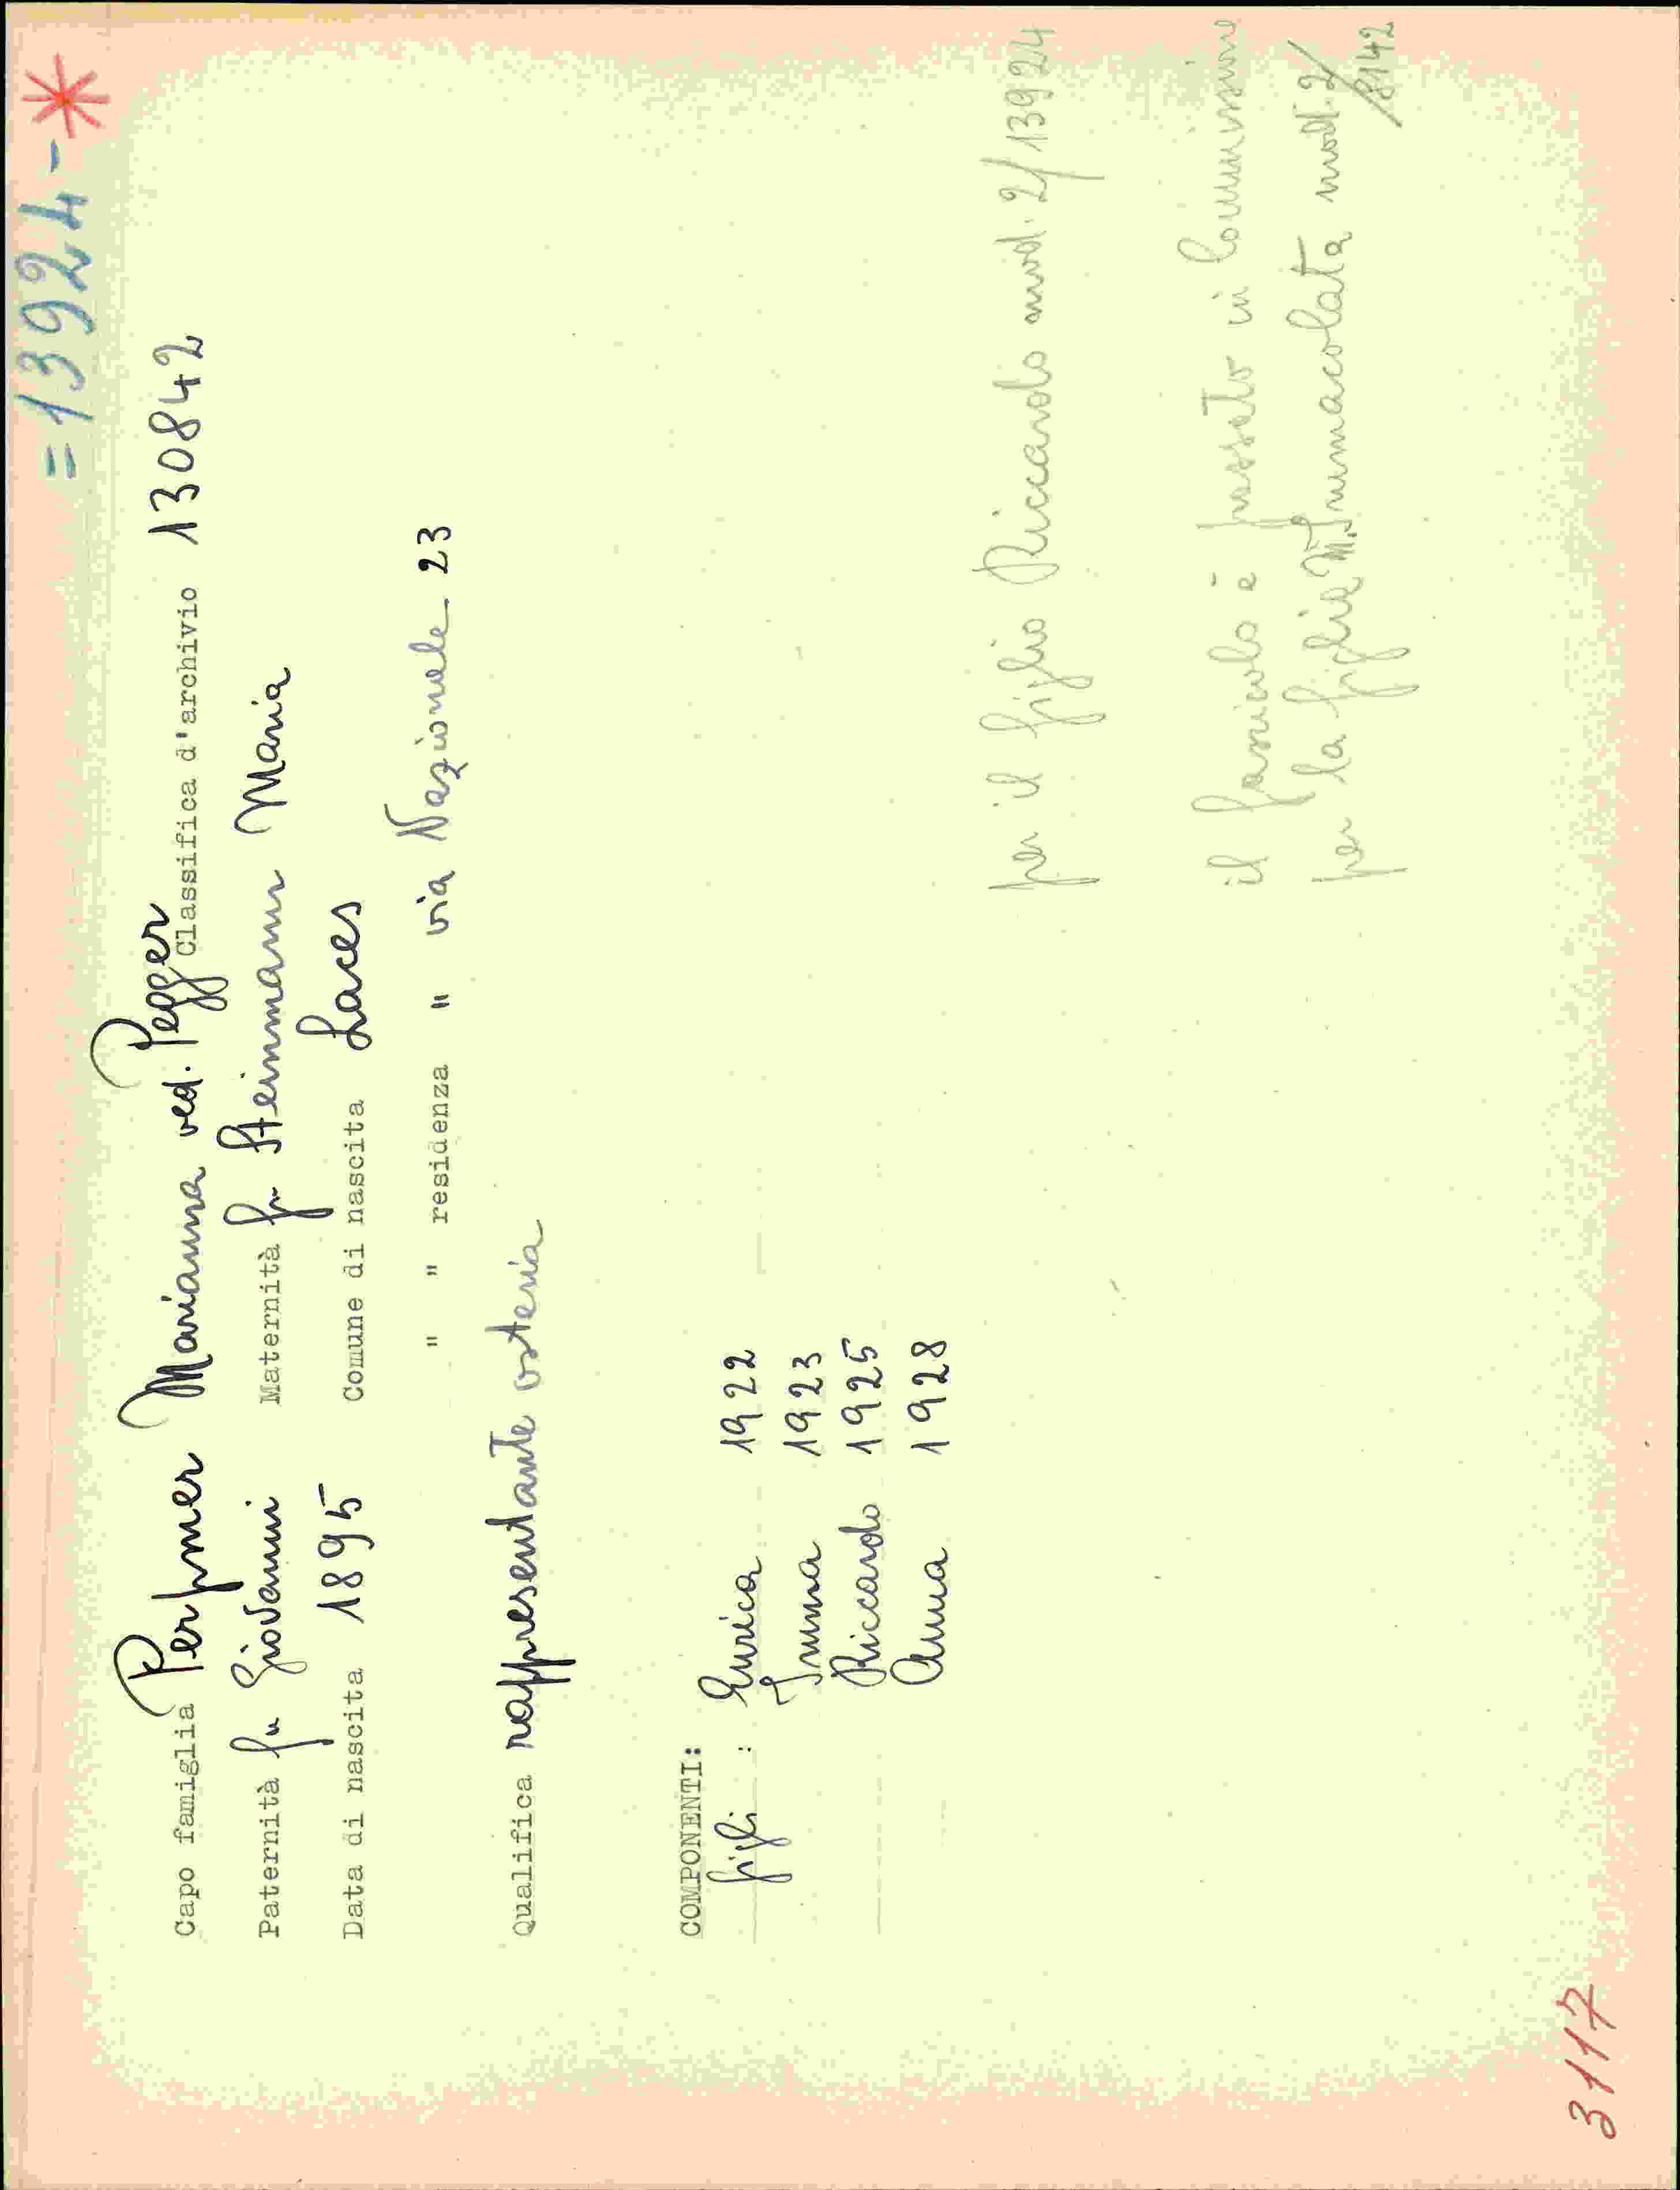 =13924-*
Capo famiglia Perfmer Marianna ved. Pegger Classifica d'archivio 130842
Paternità fu Giovanni Maternità fu Steinmann Maria
Data di nascita 1895 Comune di nascita Laces
" " residenza " via Nazionale 23
Qualifica rappresentante osteria
COMPONENTI:
figli : Enrica 1922
Imma 1923
Riccardo 1925
Anna 1928
per il figlio Riccardo mod. 2/13924
il fascicolo è passato in Commissione
per la figlia M. Immacolata mod. 2/
8142
3117